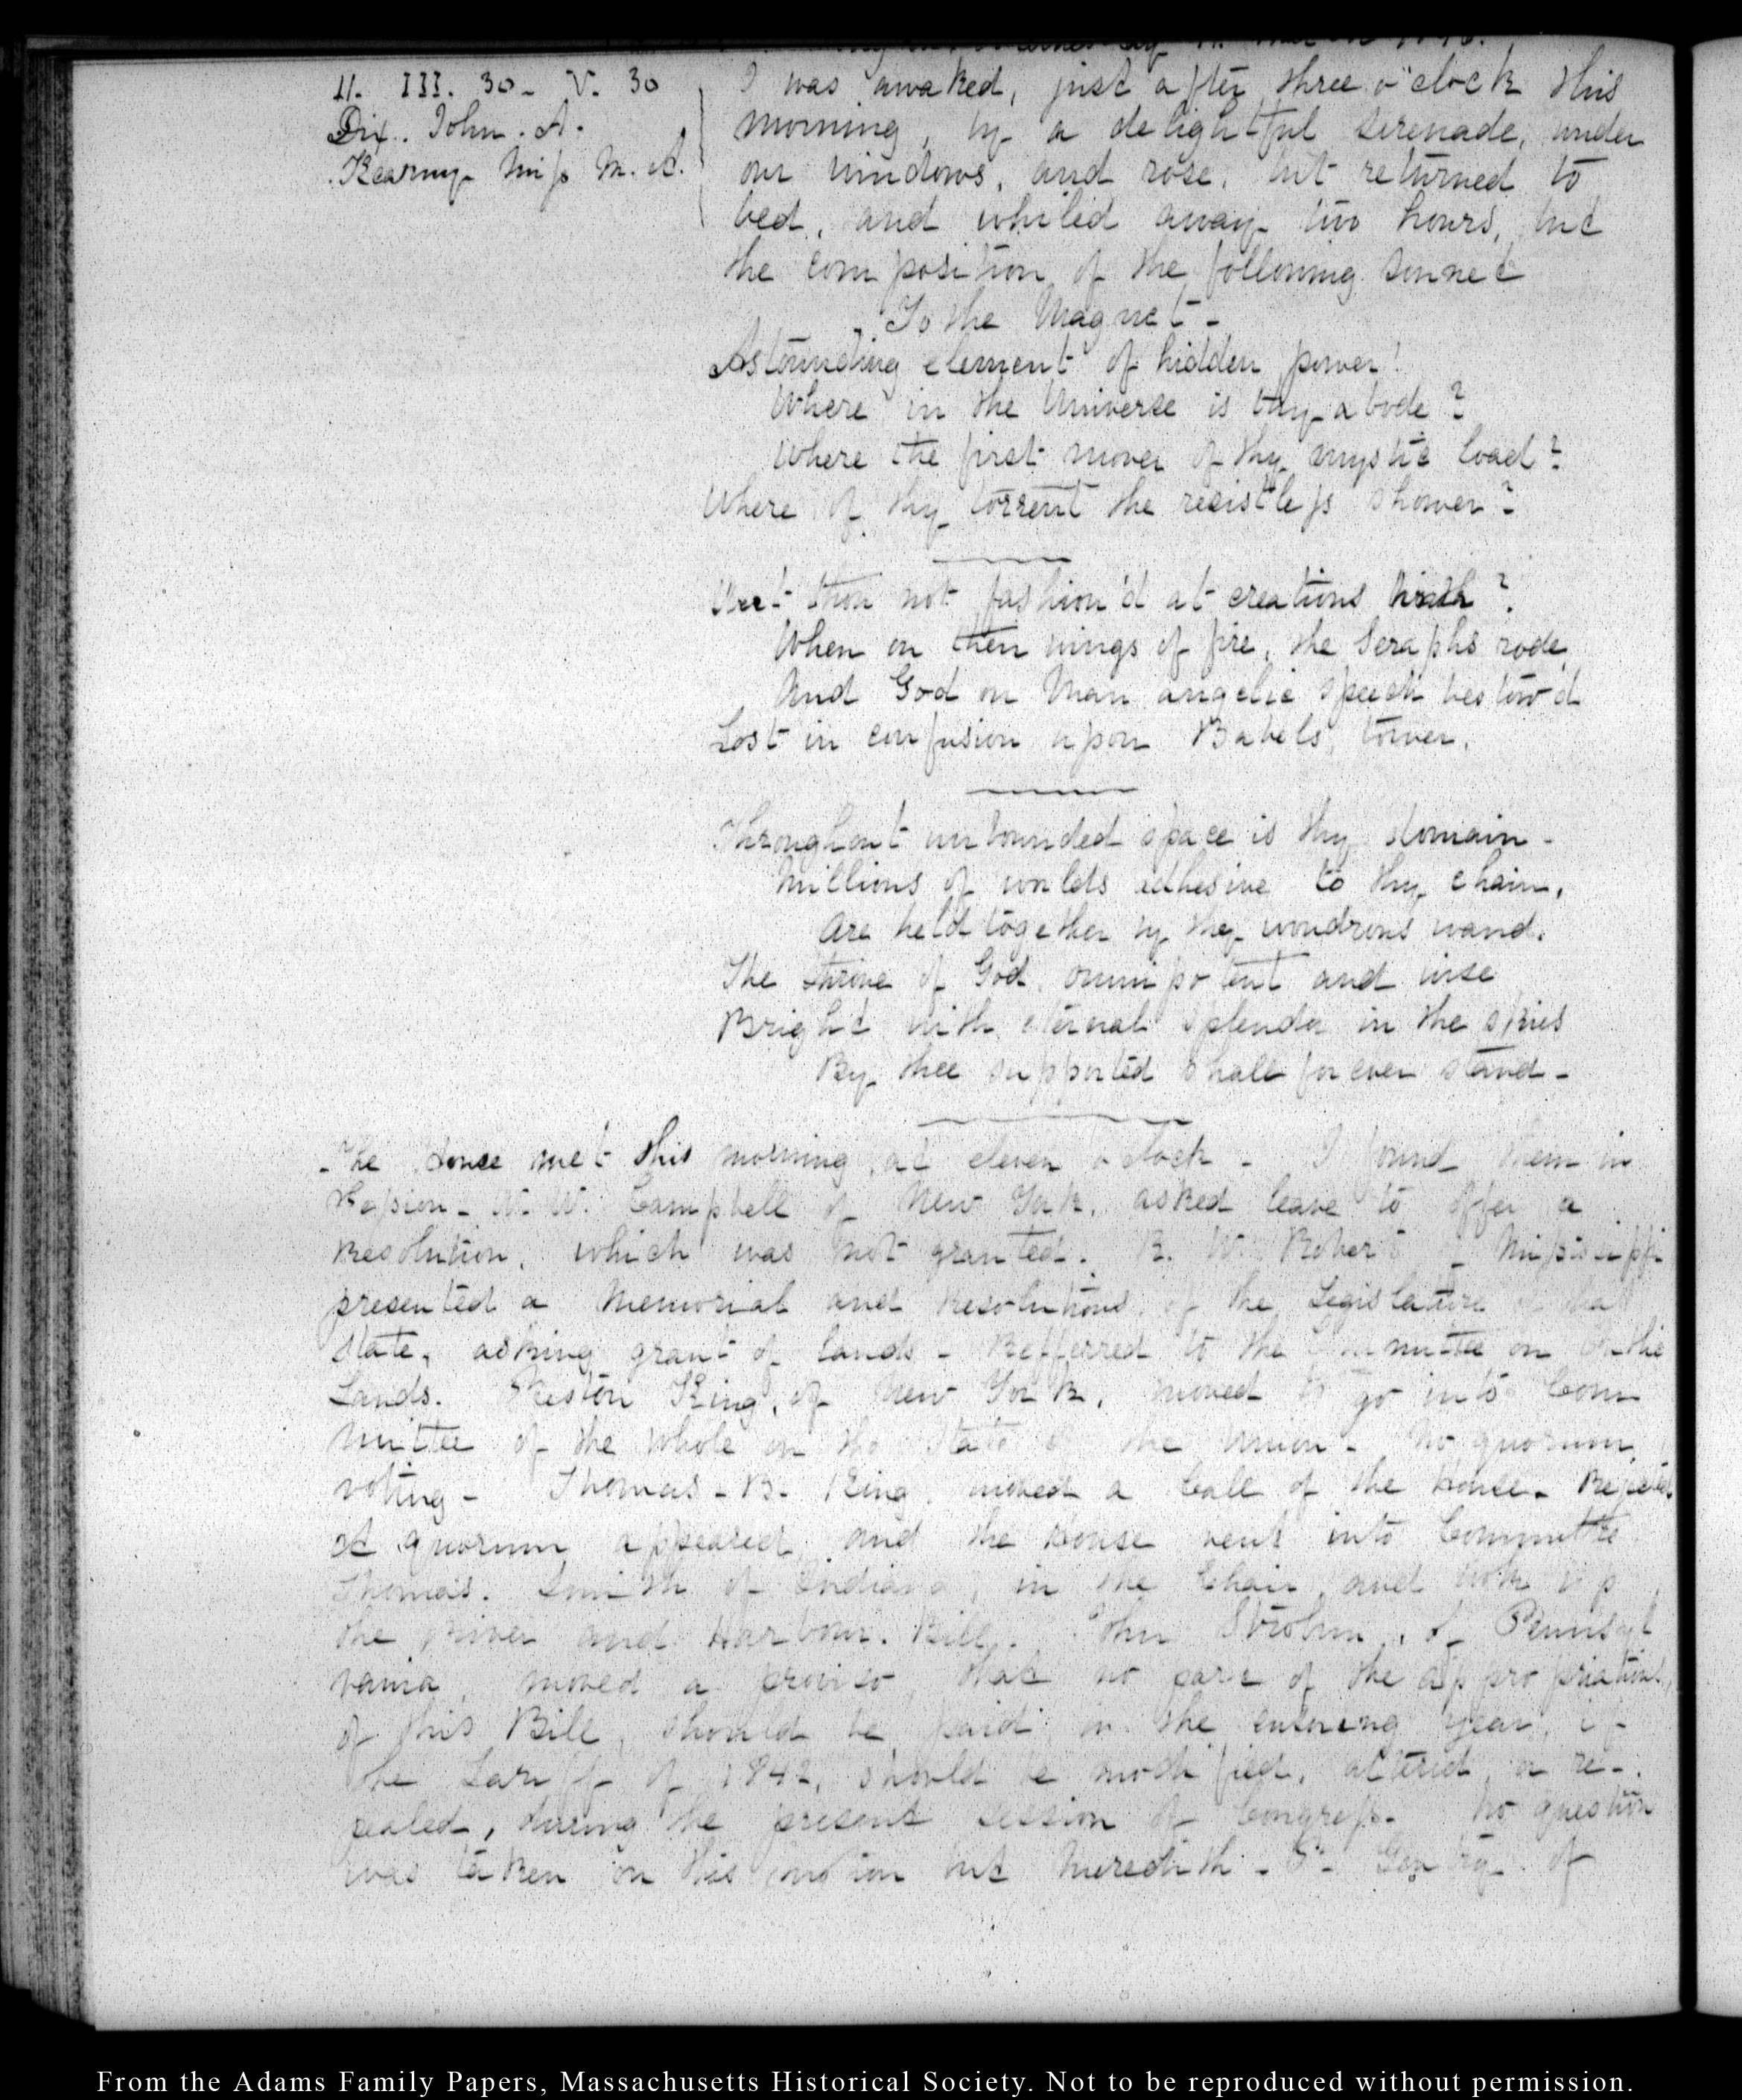 11. III. 30 - V. 30
Dix. John. A.
Kearny Miss M. A.
I was awaked, just after three o'clock this
morning, by a delightful serenade, under
our windows, and rose, but returned to
bed, and whiled away two hours, in
the composition of the following sonnet
To the Magnet -
Astounding element of hidden power!
Where in the Universe is thy abode?
Where the first mover of thy mystic load?
Where of thy torrent the resistless shower?
Wert thou not fashion'd at creations birth?
When on their wings of fire, the Seraphs rode
And God on Man angelic speech bestow'd
Lost in confusion upon Babels tower.
Throughout unbounded space is thy domain -
Millions of worlds adhesive to thy chain,
Are held together by thy wondrous wand.
The throne of God omnipotent and wise
Bright with eternal splendor in the skies
By thee supported shall forever stand -
The House met this morning at eleven o'clock - I found them in
Session - W. W. Campbell of New York, asked leave to offer a
Resolution, which was not granted. R. W. Roberts - Missisippi
presented a Memorial and Resolutions of the Legislature of that
State, asking grant of lands - Refferred to the Committee on Public
Lands. Preston King, of New York, moved to go into Com
mittee of the whole on the State of the Union - No quorum
voting - Thomas - B. King moved a Call of the House - Rejected
A quorum appeared and the House went into Committee
Thomas. Smith of Indiana, in the Chair, and took up
the River and Harbour. Bill. John Strohm, of Pennsyl
vania, moved a proviso, that no part of the appropriations,
of this Bill, should be paid in the ensuing year, if
the Tariff of 1842, should be modified, altered, or re-
pealed, during the present session of Congress - No question
was taken on this motion but Meredith - P. Gentry of
From the Adams Family Papers, Massachusetts Historical Society. Not to be reproduced without permission.